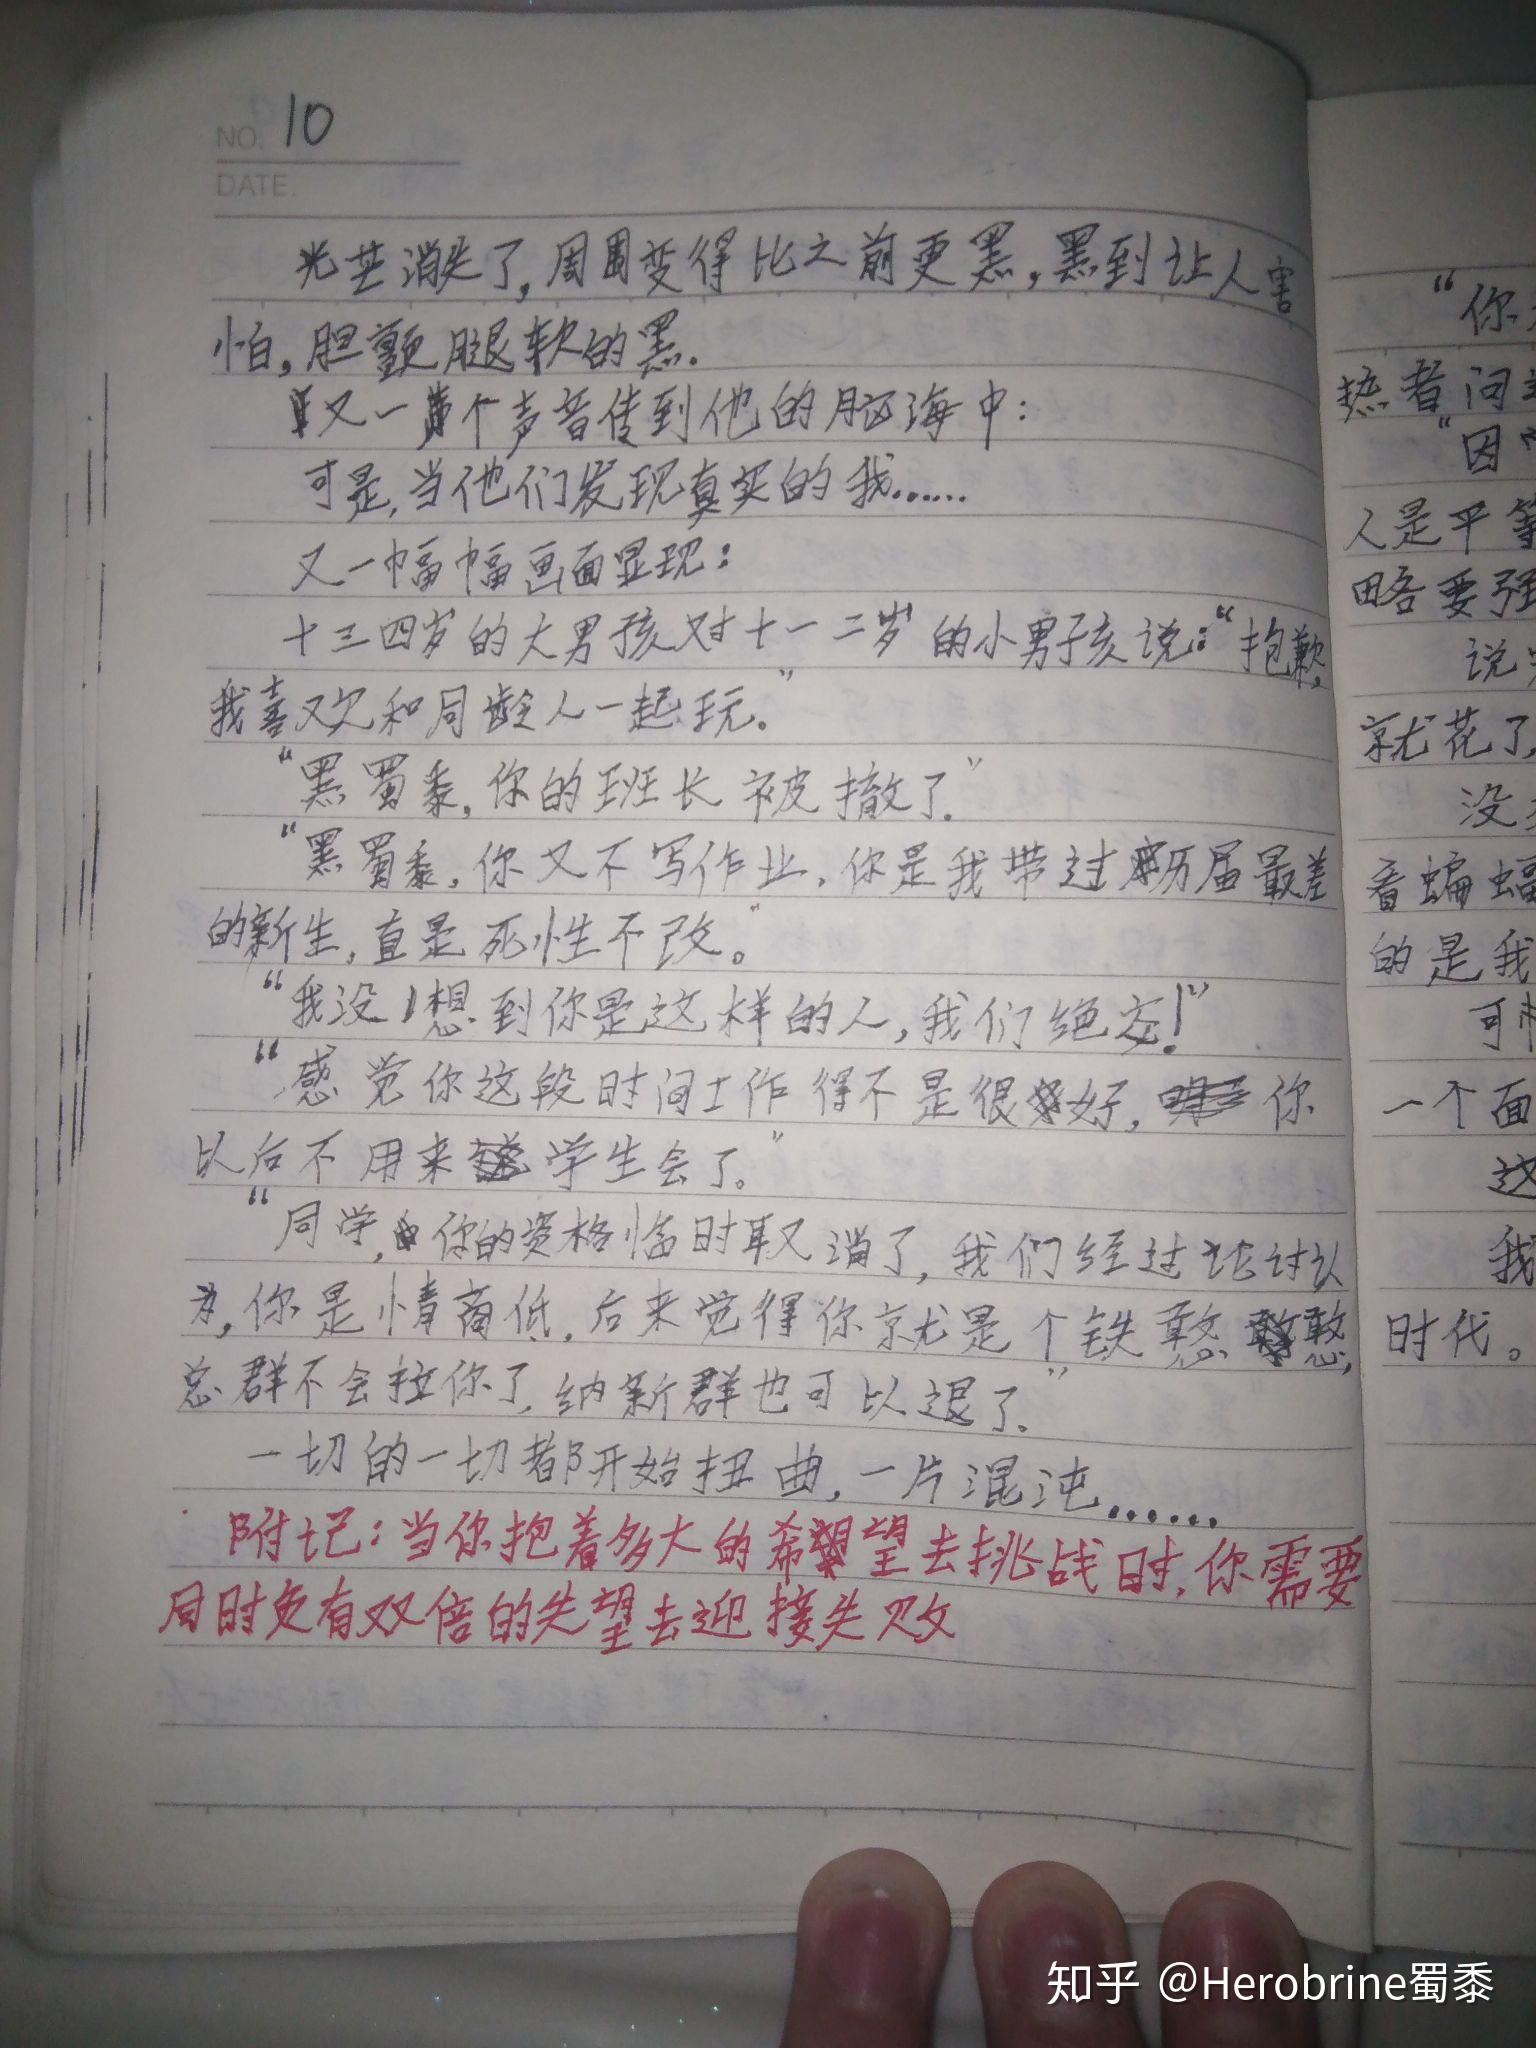 NO. 10
DATE.
光芒消失了,周围变得比之前更黑,黑到让人害
怕,胆颤腿软的黑.
又一个声音传到他的脑海中:
可是,当他们发现真实的我……
又一幅幅画面显现:
十三四岁的大男孩对十一二岁的小男孩说:“抱歉,
我喜欢和同龄人一起玩。”
“黑蜀黍,你的班长被撤了.”
“黑蜀黍,你又不写作业,你是我带过历届最差
的新生,直是死性不改。”
“我没想到你是这样的人,我们绝交!”
“感觉你这段时间工作得不是很好,你
以后不用来学生会了。”
“同学,你的资格临时取消了,我们经过讨认
为,你是情商低,后来觉得你就是个铁憨憨,
总群不会拉你了,纳新群也可以退了.”
一切的一切都开始扭曲,一片混沌……
附记:当你抱着多大的希望去挑战时,你需要
同时负有双倍的失望去迎接失败
“你
热者问
“因
人是平等
略要强
说
就花了,
没
看蝙蝠
的是我
可
一个面
这
我
时代。
知乎 @Herobrine蜀黍